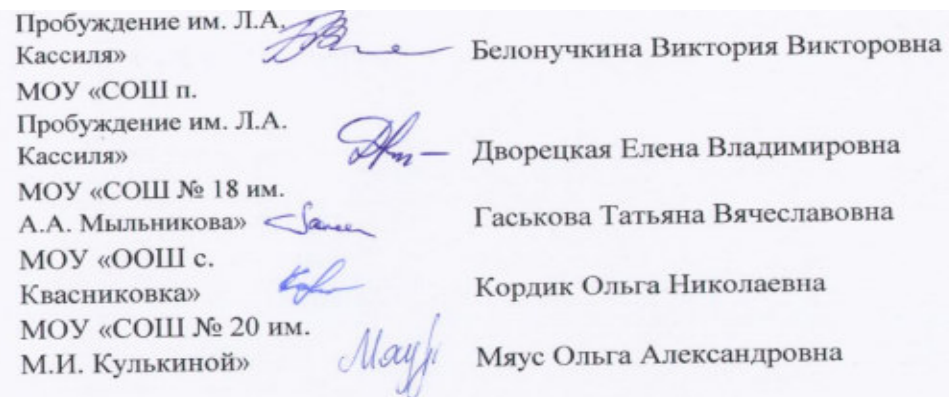 Пробуждение им. Л.А.
Кассиля» Белонучкина Виктория Викторовна
МОУ «СОШ п.
Пробуждение им. Л.А.
Кассиля» Дворецкая Елена Владимировна
МОУ «СОШ № 18 им.
А.А. Мыльникова» Гаськова Татьяна Вячеславовна
МОУ «ООШ с.
Квасниковка» Кордик Ольга Николаевна
МОУ «СОШ № 20 им.
М.И. Кулькиной» Мяус Ольга Александровна